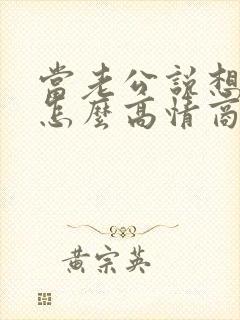 當老公說想
怎麼高情商
黃宗英